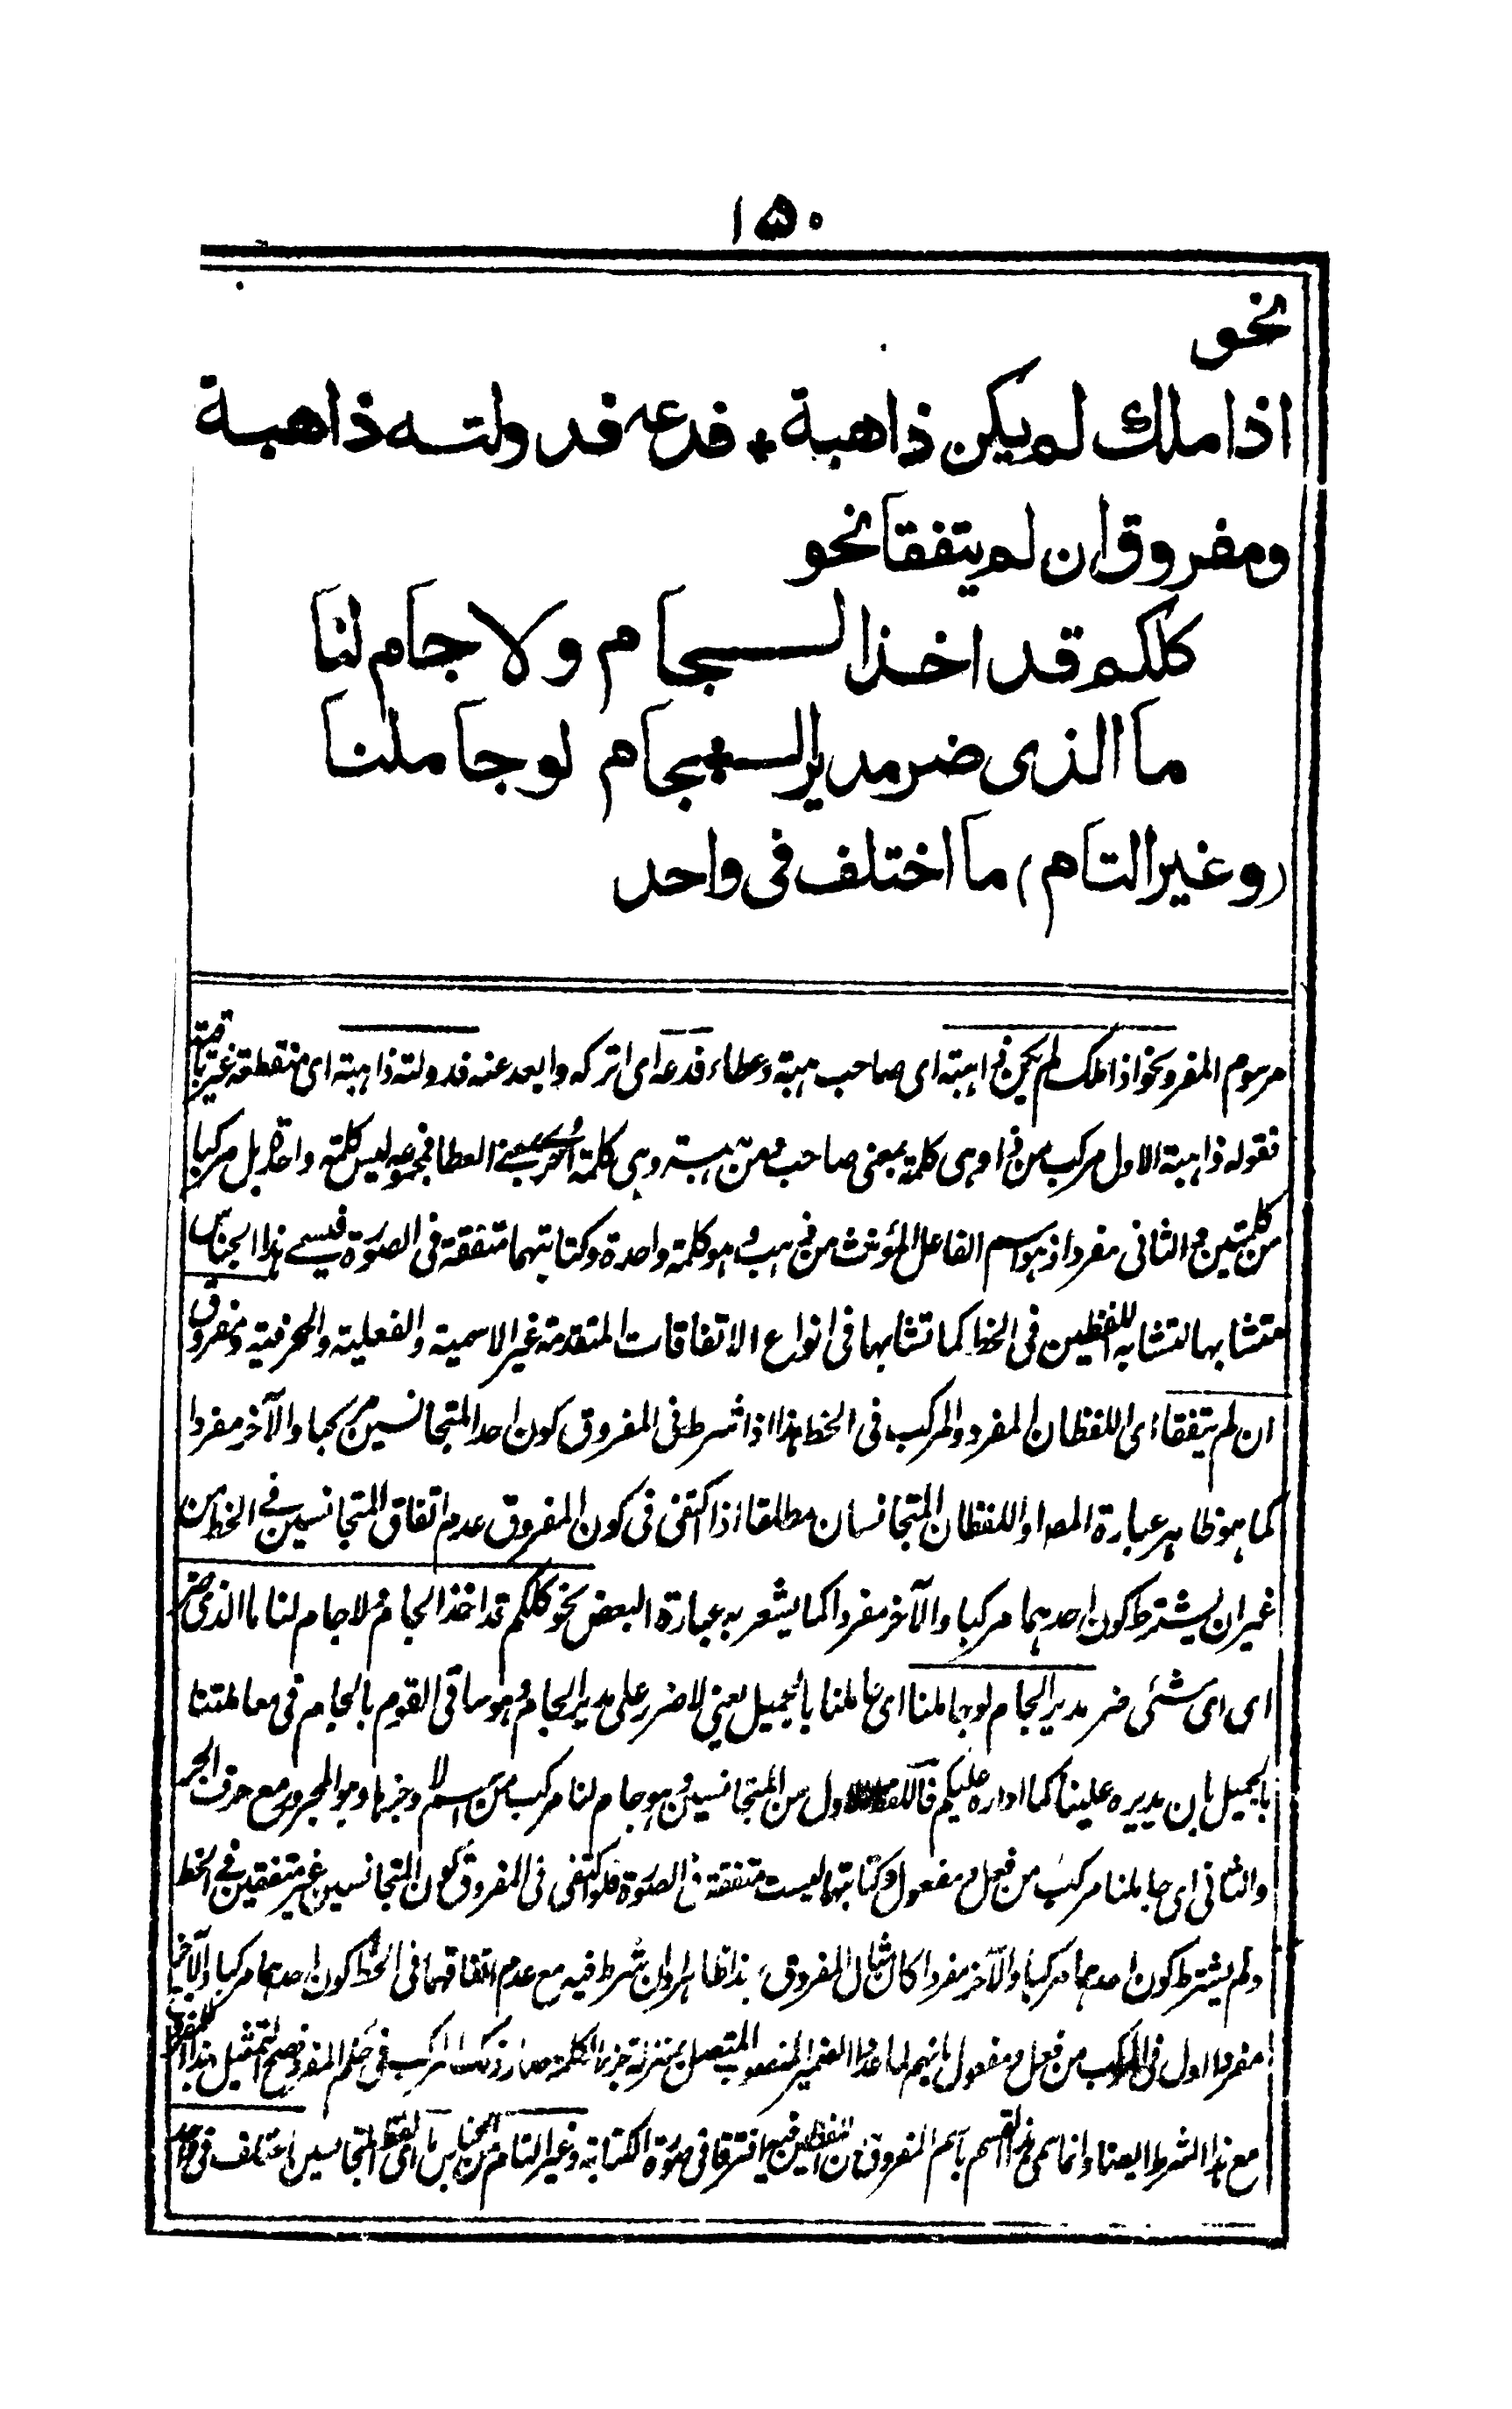 ۱۵۰
نحو
اذا ملك لم يكن ذاهبة * فدعه فدولته ذاهبة
ومفروق ان لم يتفقا نحو
كلكم قد اخذ الجام ولا جام لنا
ما الذى ضر مدير الجام لو جاملنا
(وغير التام) ما اختلف فى واحد
مرسوم المفرد نحو اذا ملك لم يكن ذا هبته اى صاحب هبته وعطاء فدعه اى اتركه وابعد عنه فدولته ذاهبته اى منقطعة غير باقية
فقوله ذا هبته الاول مركب من ذا وهى كلمة بمعنى صاحب ومن هبته وهى كلمة اخرى بمعنى العطا فمجموعه ليس كلمته واحدة بل مركبا
من كلمتين والثانى مفردا ذ هو اسم الفاعل المؤنث من ذهب وهو كلمة واحدة وكتابتهما متفقة فى الصورة فيسمى هذا الجناس
متشابها لتشابه اللفظين فى الخط كما تشابها فى انواع الاتفاقات المتقدمة غير الاسمية والفعلية والحرفية ومفروق
ان لم يتفقا اى اللفظان المفرد والمركب فى الخط هذا اذا شرط فى المفروق كون احد المتجانسين مركبا والآخر مفردا
كما هو ظاهر عبارة المصـ او اللفظان المتجانسان مطلقا اذا اكتفى فى كون المفروق عدم اتفاق المتجانسين فى الخط من
غير ان يشترط كون احدهما مركبا والآخر مفردا كما يشعر به عبارة البعض نحو كلكم قد اخذ الجام ولا جام لنا ما الذى ضر
اى اى شئى ضر مدير الجام لو جاملنا اى عاملنا بالجميل يعنى لا ضرر على مدير الجام وهو ساقى القوم بالجام فى معاملتنا
بالجميل بان يديره علينا كما اداره عليكم فاللفظ الاول من المتجانسين وهو جام لنا مركب من اسم لا وخبرها وهو المجرور مع حرف الجر
والثانى اى جاملنا مركب من فعل ومفعول وكتابتهما ليست متفقة فى الصورة فلو اكتفى فى المفروق كون المتجانسين غير متفقين فى الخط
ولم يشترط كون احدهما مركبا والآخر مفردا كان مثال المفروق هذا ظاهرا وان شرط فيه مع عدم اتفاقهما فى الخط كون احدهما مركبا والآخر
مفردا اول فى المركب من فعل ومفعول بانهم لما عدوا الضمير المنصوب المتصل بمنزلة جزء الكلمة صار ذلك المركب فى حكم المفرد فصح التمثيل بهذا للمفروق
مع هذا الشرط ايضا وانما سمى هذا القسم باسم المفروق لان اللفظين فيه افترقا فى صورة الكتابة وغير التام من الجناس ما اى لفظ المتجانسين اختلف فى واحد